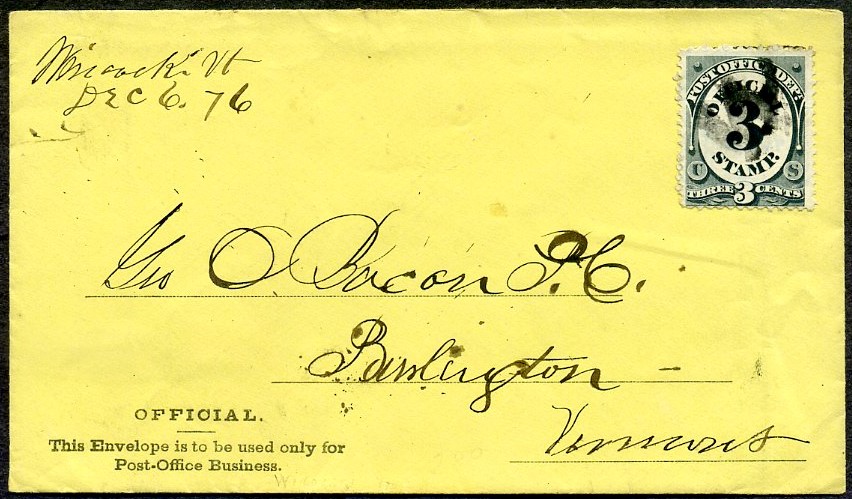 Vt
DEC 6. 76
POST OFFICE DEPT.
OFFICIAL
3
STAMP.
U S
THREE 3 CENTS
Geo O. Bacon P.C.
Burlington
Vermont
OFFICIAL.
This Envelope is to be used only for
Post-Office Business.